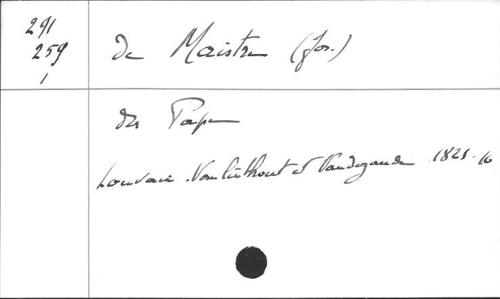 291
259
1
de Maistre (Jos.)
du Pape
Louvain. Vanlinthout et Vandezande 1821. 16